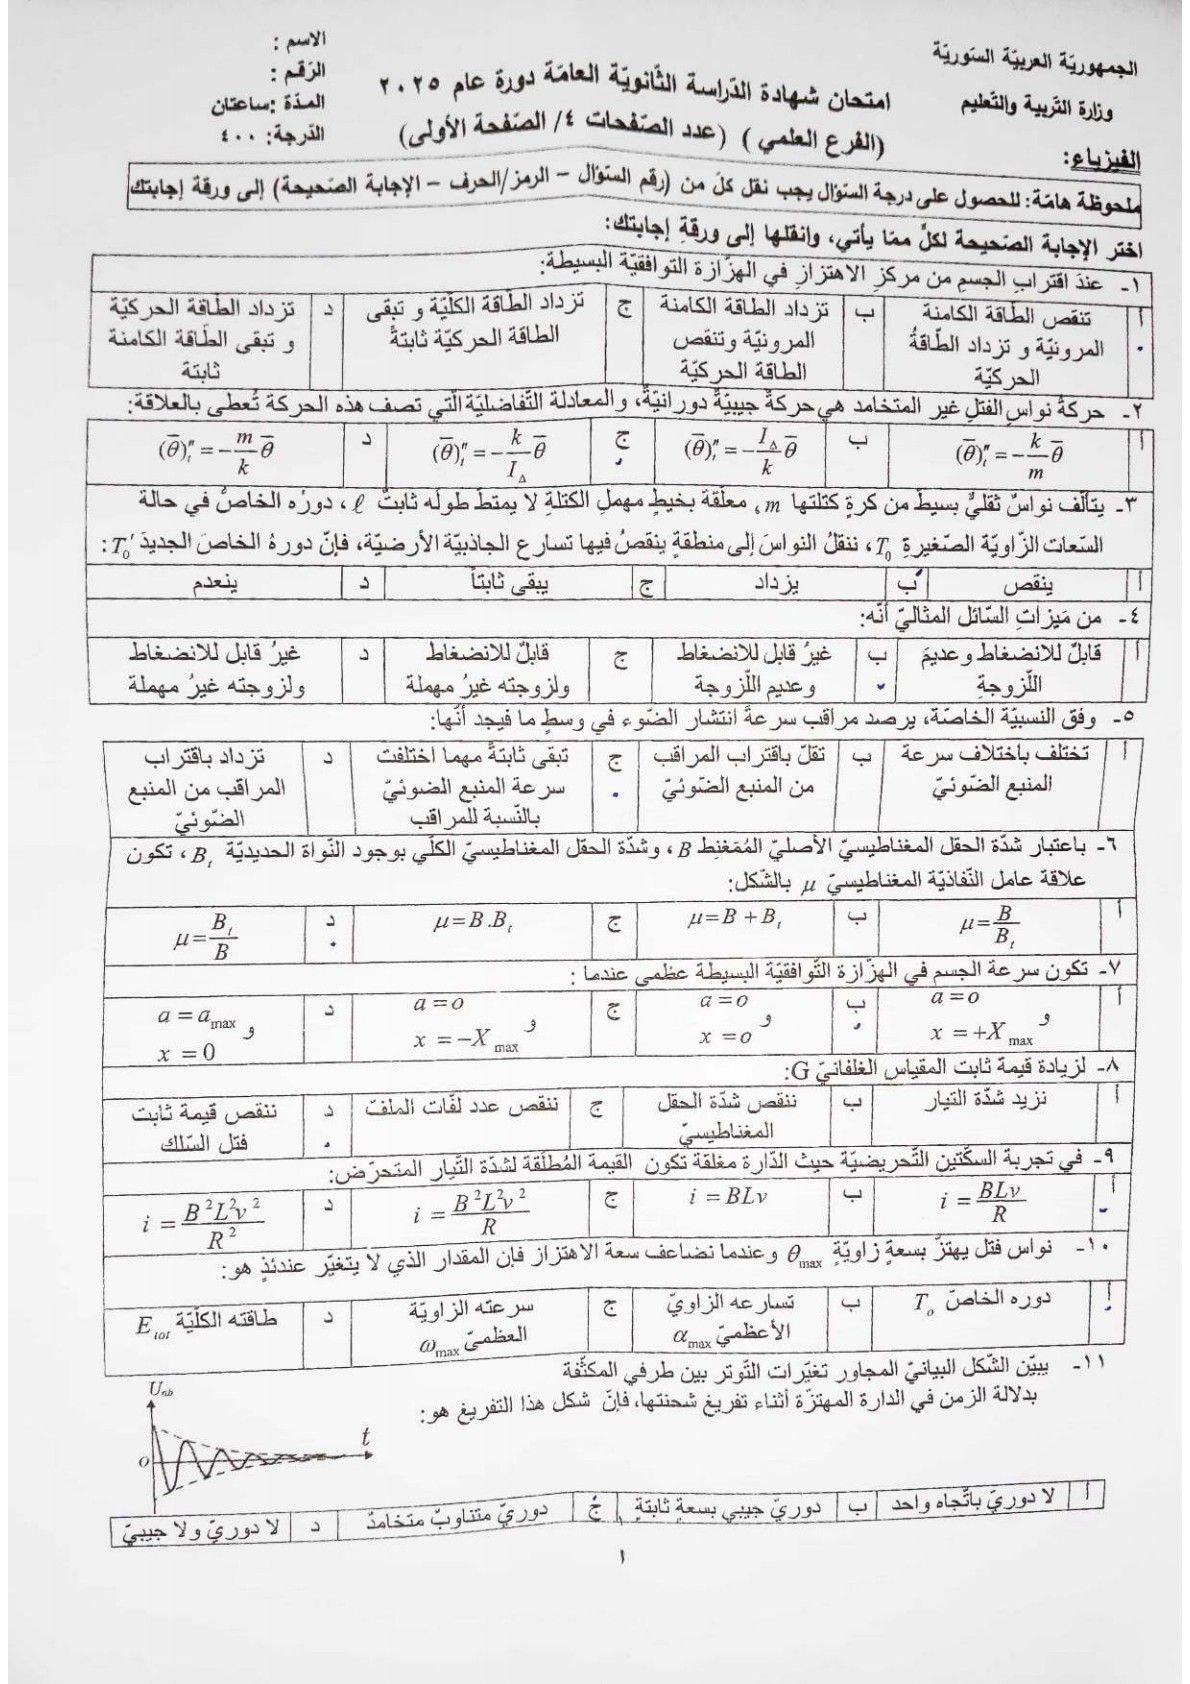 الجمهوريّة العربيّة السّوريّة
وزارة التّربية والتّعليم
الفيزياء:
امتحان شهادة الدّراسة الثّانويّة العامّة دورة عام ٢٠٢٥
(الفرع العلمي) (عدد الصّفحات ٤/ الصّفحة الأولى)
الاسم :
الرّقم :
المدّة :ساعتان
الدّرجة: ٤٠٠
ملحوظة هامّة: للحصول على درجة السّؤال يجب نقل كلّ من (رقم السّؤال – الرمز/الحرف – الإجابة الصّحيحة) إلى ورقة إجابتك
اختر الإجابة الصّحيحة لكلّ ممّا يأتي، وانقلها إلى ورقةِ إجابتك:
١- عندَ اقترابِ الجسمِ من مركزِ الاهتزازِ في الهزّازة التوافقيّة البسيطة:
أ تنقص الطّاقة الكامنة المرونيّة و تزداد الطّاقةُ الحركيّة
ب تزداد الطّاقة الكامنة المرونيّة وتنقص الطاقة الحركيّة
ج تزداد الطّاقة الكلّيّة و تبقى الطاقة الحركيّة ثابتةً
د تزداد الطّاقة الحركيّة و تبقى الطّاقة الكامنة ثابتة
٢- حركةُ نواسِ الفتلِ غير المتخامد هي حركةٌ جيبيّةٌ دورانيّةٌ، والمعادلة التّفاضليّة الّتي تصف هذه الحركة تُعطى بالعلاقة:
أ (θ̄)″ₜ = −(k/m) θ̄
ب (θ̄)″ₜ = −(I_Δ/k) θ̄
ج (θ̄)″ₜ = −(k/I_Δ) θ̄
د (θ̄)″ₜ = −(m/k) θ̄
٣- يتألّف نواسٌ ثقليٌّ بسيطٌ من كرةٍ كتلتها m، معلّقة بخيطٍ مهملِ الكتلةِ لا يمتطّ طوله ثابتٌ ℓ، دورُه الخاصُّ في حالة
السّعات الزّاويّة الصّغيرةِ T₀، ننقلُ النواسَ إلى منطقةٍ ينقصُ فيها تسارع الجاذبيّة الأرضيّة، فإنّ دورهُ الخاصَ الجديدَ T₀′:
أ ينقص ب يزداد ج يبقى ثابتاً د ينعدم
٤- من مَيزاتِ السّائل المثاليّ أنّه:
أ قابلٌ للانضغاط وعديمَ اللّزوجةِ
ب غيرُ قابل للانضغاط وعديم اللّزوجة
ج قابلٌ للانضغاط ولزوجته غيرُ مهملة
د غيرُ قابل للانضغاط ولزوجته غيرُ مهملة
٥- وفق النسبيّة الخاصّة، يرصد مراقب سرعةَ انتشار الضّوء في وسطٍ ما فيجد أنّها:
أ تختلف باختلاف سرعة المنبع الضّوئيّ
ب تقلّ باقتراب المراقب من المنبع الضّوئيّ
ج تبقى ثابتةً مهما اختلفت سرعة المنبع الضوئيّ بالنّسبة للمراقب
د تزداد باقتراب المراقب من المنبع الضّوئيّ
٦- باعتبار شدّة الحقل المغناطيسيّ الأصليّ المُمَغنِط B، وشدّة الحقل المغناطيسيّ الكلّي بوجود النّواة الحديديّة Bₜ، تكون
علاقة عامل النّفاذيّة المغناطيسيّ μ بالشّكل:
أ μ=B/Bₜ
ب μ=B+Bₜ
ج μ=B.Bₜ
د μ=Bₜ/B
٧- تكون سرعة الجسم في الهزّازة التّوافقيّة البسيطة عظمى عندما :
أ a=o و x=+X max
ب a=o و x=o
ج a=o و x=−X max
د a=a max و x=0
٨- لزيادة قيمة ثابت المقياس الغلفانيّ G:
أ نزيد شدّة التيار
ب ننقص شدّة الحقل المغناطيسيّ
ج ننقص عدد لفّات الملفّ
د ننقص قيمة ثابت فتل السّلك
٩- في تجربة السكّتين التّحريضيّة حيث الدّارة مغلقة تكون القيمة المُطلَقة لشدّة التّيار المتحرّض:
أ i = BLv/R
ب i = BLv
ج i = B²L²v²/R
د i = B²L²v²/R²
١٠- نواس فتل يهتزّ بسعةٍ زاويّةٍ θmax وعندما نضاعف سعة الاهتزاز فإن المقدار الذي لا يتغيّر عندئذٍ هو:
أ دوره الخاصّ T₀
ب تسارعه الزاويّ الأعظميّ αmax
ج سرعته الزاويّة العظميّ ωmax
د طاقته الكلّيّة E tot
١١- يبيّن الشّكل البيانيّ المجاور تغيّرات التّوتر بين طرفي المكثّفة
بدلالة الزمن في الدارة المهتزّة أثناء تفريغ شحنتها، فإنّ شكل هذا التفريغ هو:
Uab
o
t
أ لا دوريّ باتّجاه واحد ب دوريّ جيبي بسعةٍ ثابتةٍ ج دوريّ متناوبٌ متخامدٌ د لا دوريّ ولا جيبيّ
١